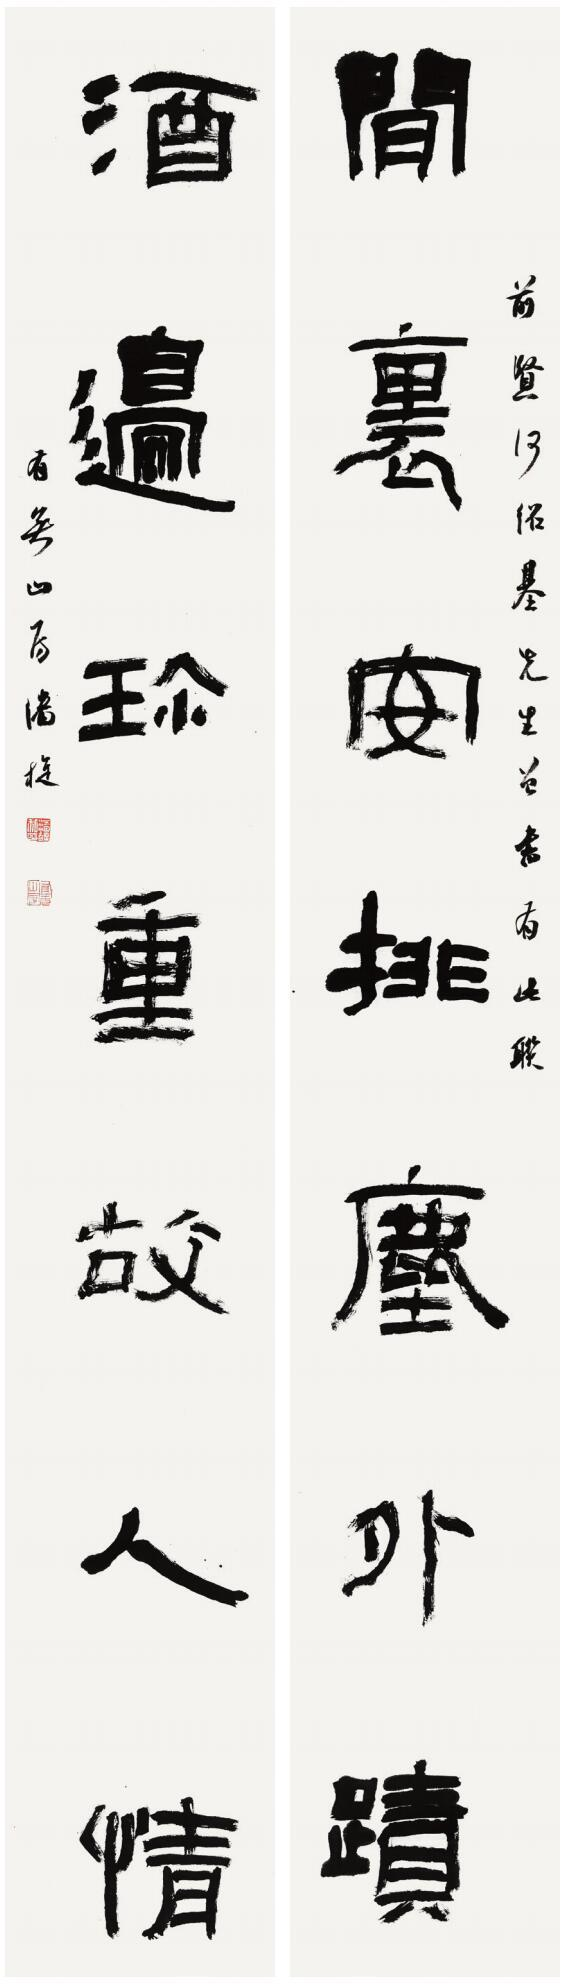 間裏安排塵外蹟
前賢何紹基先生曾書有此聯
酒邊珍重故人情
有無山房潘樅